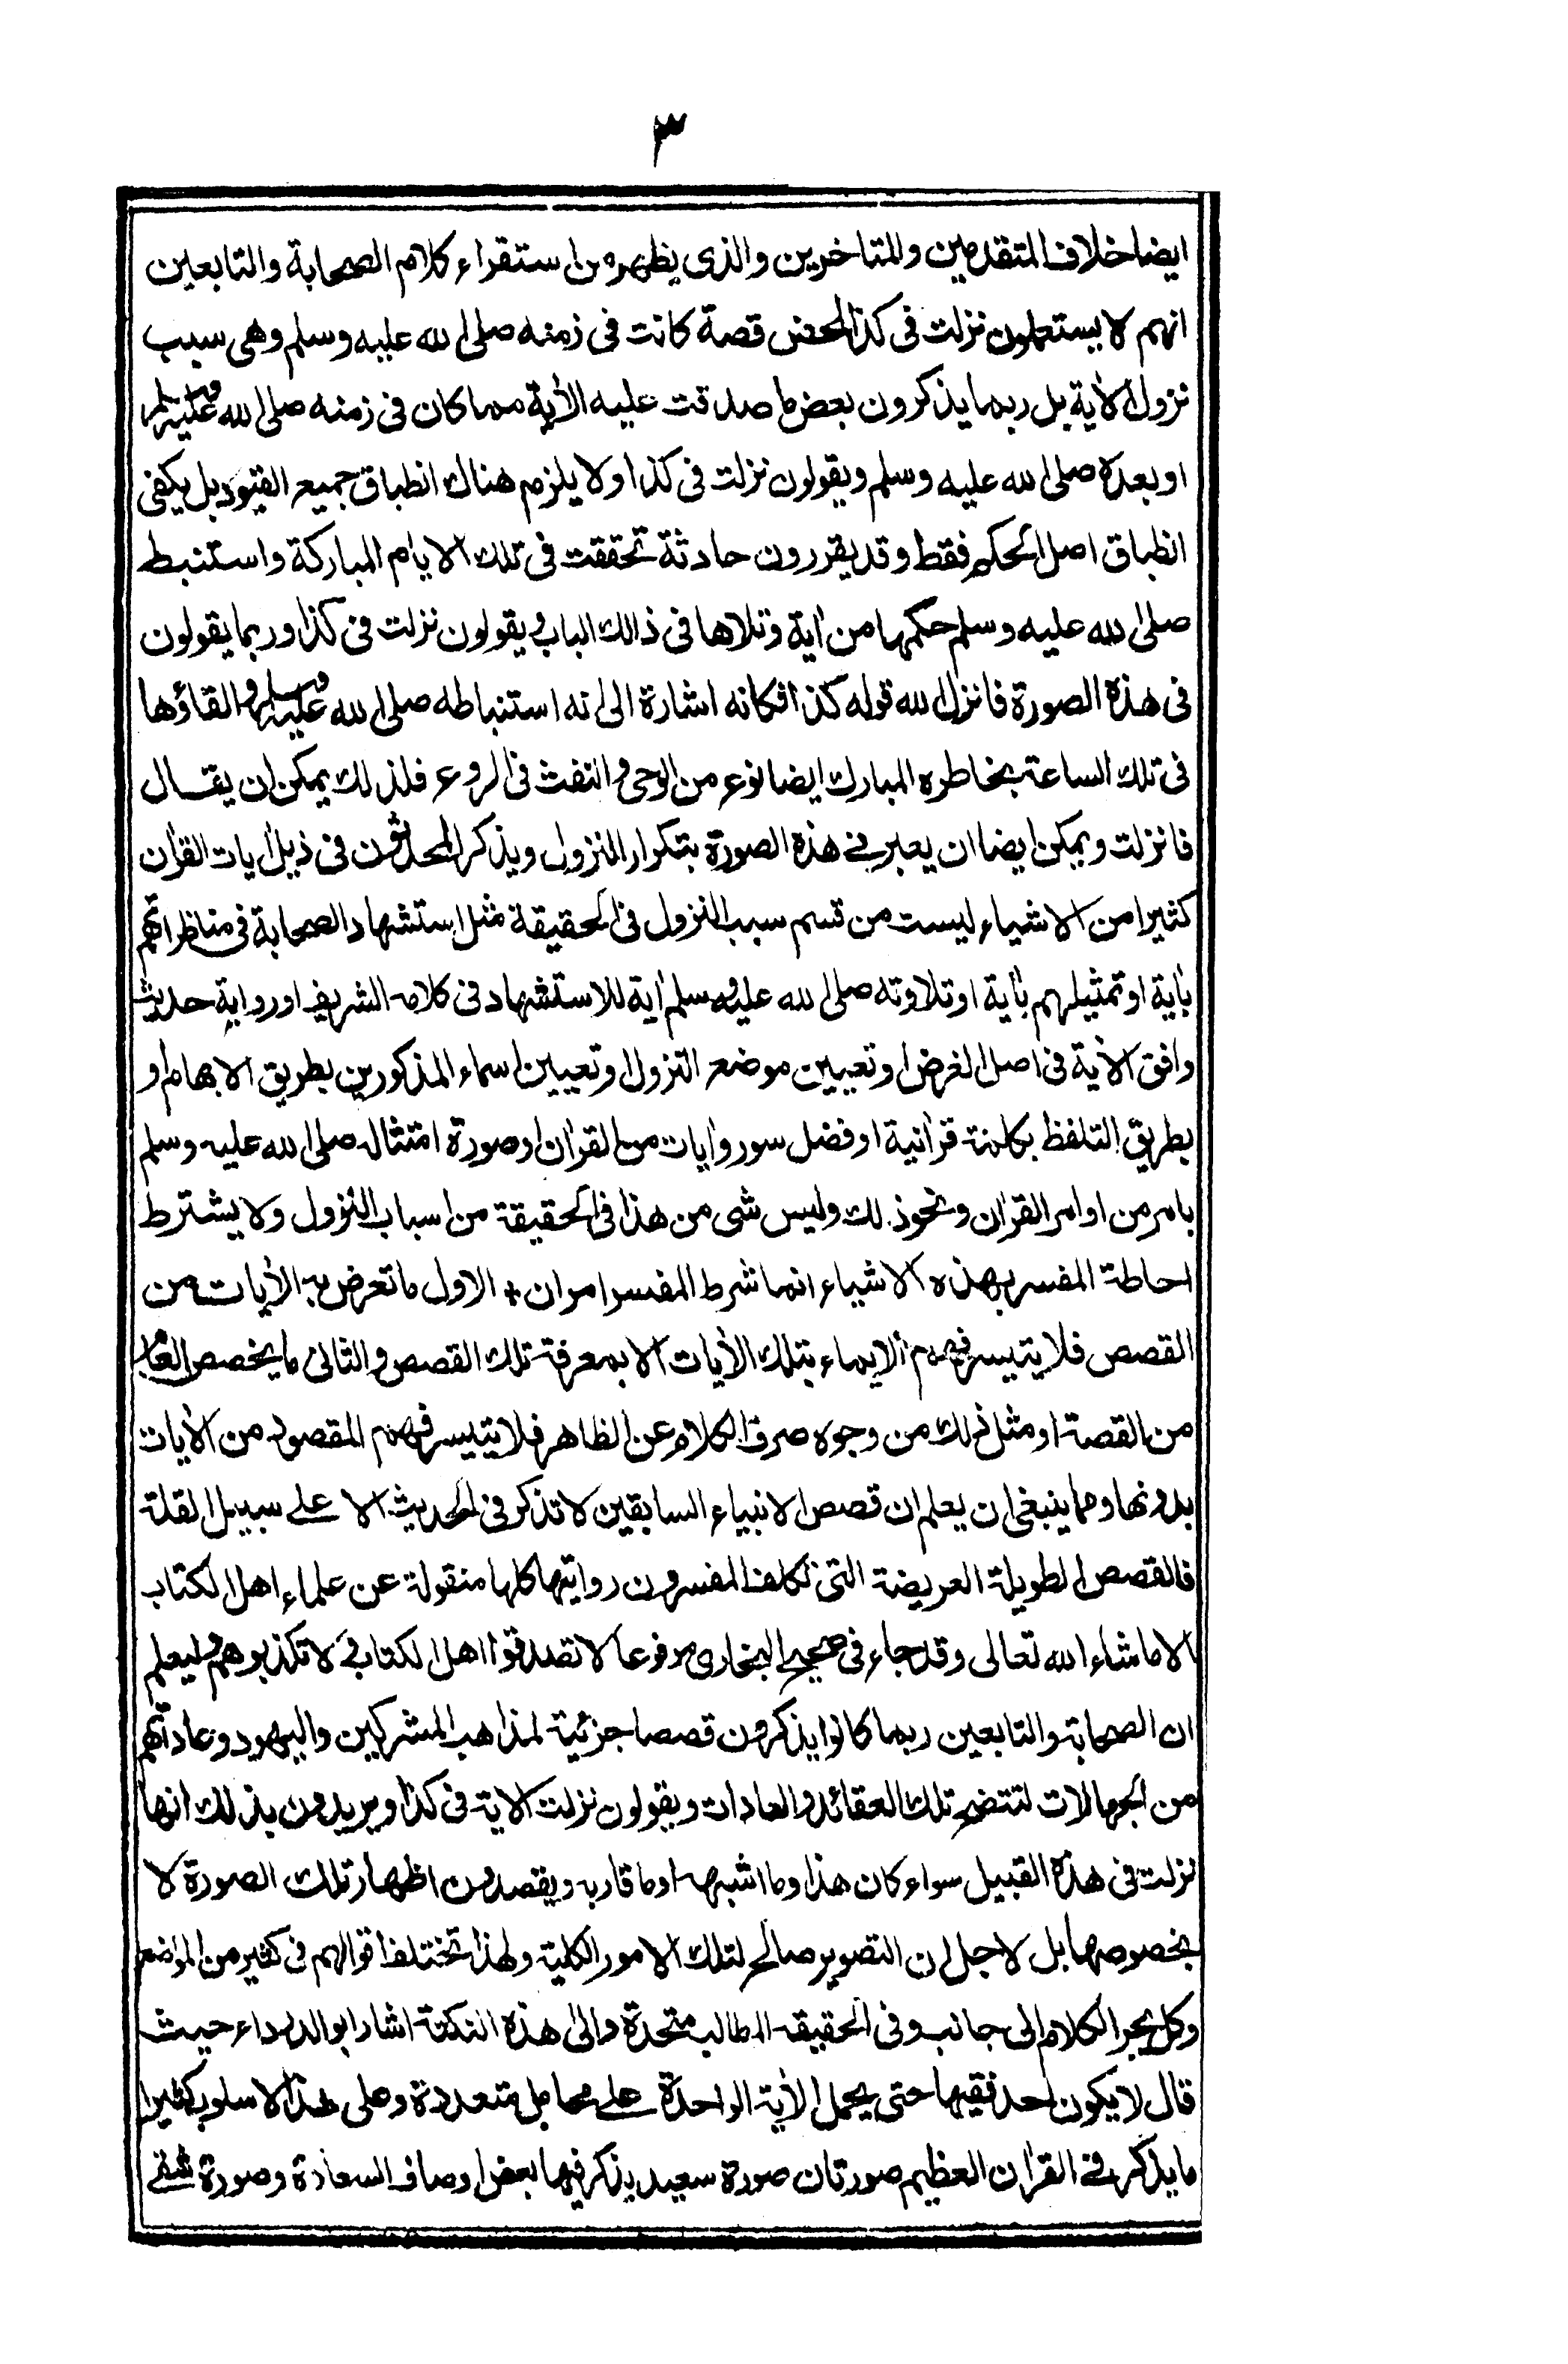 ٣
ايضا خلاف المتقدمين والمتاخرين والذى يظهر من استقراء كلام الصحابة والتابعين
انهم لا يستعملون نزلت فى كذا لمحض قصة كانت فى زمنه صلى الله عليه وسلم وهى سبب
نزول الأية بل ربما يذكرون بعض ما صدقت عليه الأية مما كان فى زمنه صلى الله عليه وسلم
او بعده صلى الله عليه وسلم ويقولون نزلت فى كذا ولا يلزم هناك انطباق جميع القيود بل يكفى
انطباق اصل الحكم فقط وقد يقررون حادثة تحققت فى تلك الايام المباركة واستنبط
صلى الله عليه وسلم حكمها من أية وتلاها فى ذالك الباب ويقولون نزلت فى كذا وربما يقولون
فى هذه الصورة فانزل الله قوله كذا فكانه اشارة الى انه استنباطه صلى الله عليه وسلم والقاؤها
فى تلك الساعة بخاطره المبارك ايضا نوع من الوحى والنفث فى الروع فلذلك يمكن ان يقال
فانزلت ويمكن ايضا ان يعبر فى هذه الصورة بتكرار النزول ويذكر المحدثون فى ذيل أيات القرأن
كثيرا من الاشياء ليست من قسم سبب النزول فى الحقيقة مثل استشهاد الصحابة فى مناظراتهم
بأية او تمثيلهم بأية او تلاوته صلى الله عليه وسلم أية للاستشهاد فى كلامه الشريف او رواية حديث
وافق الأية فى اصل الغرض او تعيين موضع النزول او تعيين اسماء المذكورين بطريق الابهام او
بطريق التلفظ بكلمة قرأنية او فضل سور وأيات من القرأن او صورة امتثاله صلى الله عليه وسلم
بامر من اوامر القرأن ونحو ذلك وليس شى من هذا فى الحقيقة من اسباب النزول ولا يشترط
احاطة المفسر بهذه الاشياء انما شرط المفسر امران + الاول ما تعرض به الأيات من
القصص فلا يتيسر فهم الايماء بتلك الأيات الا بمعرفة تلك القصص والثانى ما يخصص العام
من القصة او مثل ذلك من وجوه صرف الكلام عن الظاهر فلا يتيسر فهم المقصود من الأيات
بدونها ومما ينبغى ان يعلم ان قصص الانبياء السابقين لا تذكر فى الحديث الا على سبيل القلة
فالقصص الطويلة العريضة التى تكلف المفسرون روايتها كلها منقولة عن علماء اهل الكتاب
الا ما شاء الله تعالى وقد جاء فى صحيح البخارى مرفوعا لا تصدقوا اهل الكتاب ولا تكذبوهم وليعلم
ان الصحابة والتابعين ربما كانوا يذكرون قصصا جزئية لمذاهب المشركين واليهود وعاداتهم
من الجهالات لتتضح تلك العقائد والعادات ويقولون نزلت الاية فى كذا ويريدون بذلك انها
نزلت فى هذه القبيل سواء كان هذا وما اشبهه او ما قاربه ويقصدون اظهار تلك الصورة لا
بخصوصها بل لاجل ان التصوير صالح لتلك الامور الكلية ولهذا تختلف اقوالهم فى كثير من المواضع
وكل يجر الكلام الى جانب وفى الحقيقة المطالب متحدة والى هذه النكتة اشار ابو الدرداء حيث
قال لا يكون احد فقيها حتى يحمل الأية الواحدة على محامل متعددة وعلى هذا الاسلوب كثيرا
ما يذكر فى القرأن العظيم صورتان صورة سعيد يذكر فيها بعض اوصاف السعادة وصورة شقى